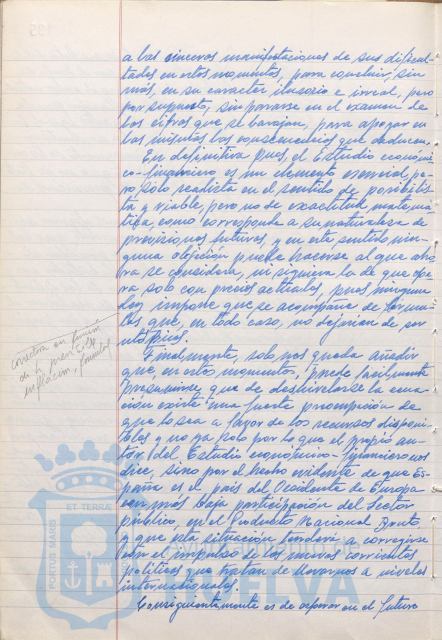 a las sinceras manifestaciones de sus dificul-
tades en estos momentos, para concluir, sin
más, en su carácter ilusorio e irreal, pero
por supuesto, sin pararse en el examen de
las cifras que se barajan, para apoyar en
las mismas las consecuencias que deducen.
En definitiva pues, el Estudio económi-
co-financiero es un elemento esencial, pe-
ro sólo realista en el sentido de posibilis-
ta y viable, pero no de exactitud matemá-
tica, como corresponde a su naturaleza de
previsiones futuras, y en este sentido nin-
guna objeción puede hacerse al que aho-
ra se considera, ni siquiera la de que ope-
ra solo con precios actuales, pues ninguna
ley impone que se acompañe de fórmu-
las que, en todo caso, no dejarían de ser
utópicas.
correctora en función
de la
inflación, fórmulas
Finalmente, solo nos queda añadir
que, en estos momentos, puede facilmente
presumirse que de desnivelarse la ecua-
ción existe una fuerte presunción de
que lo sea a favor de los recursos disponi-
bles y no ya solo por lo que el propio au-
tor del Estudio económico-financiero nos
dice, sino por el hecho evidente de que Es-
paña es el país del Occidente de Europa
con más baja participación del Sector
público, en el Producto Nacional Bruto
y que esta situación tenderá a corregirse
con el impulso de las nuevas corrientes
políticas que tratan de llevarnos a niveles
internacionales.
Consiguientemente es de esperar en el futuro
PORTUS MARIS
ET TERRAE
HUELVA